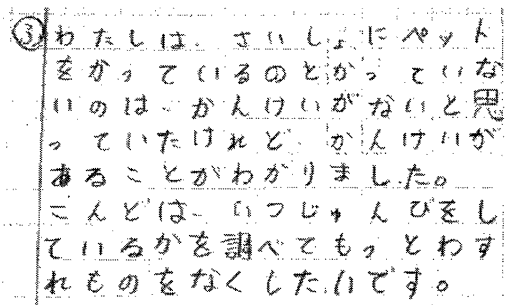 ③わたしは、さいしょにペット
をかっているのとかっていな
いのは、かんけいがないと思
っていたけれど、かんけいが
あることがわかりました。
こんどは、いつじゅんびをし
ているかを調べてもっとわす
れものをなくしたいです。